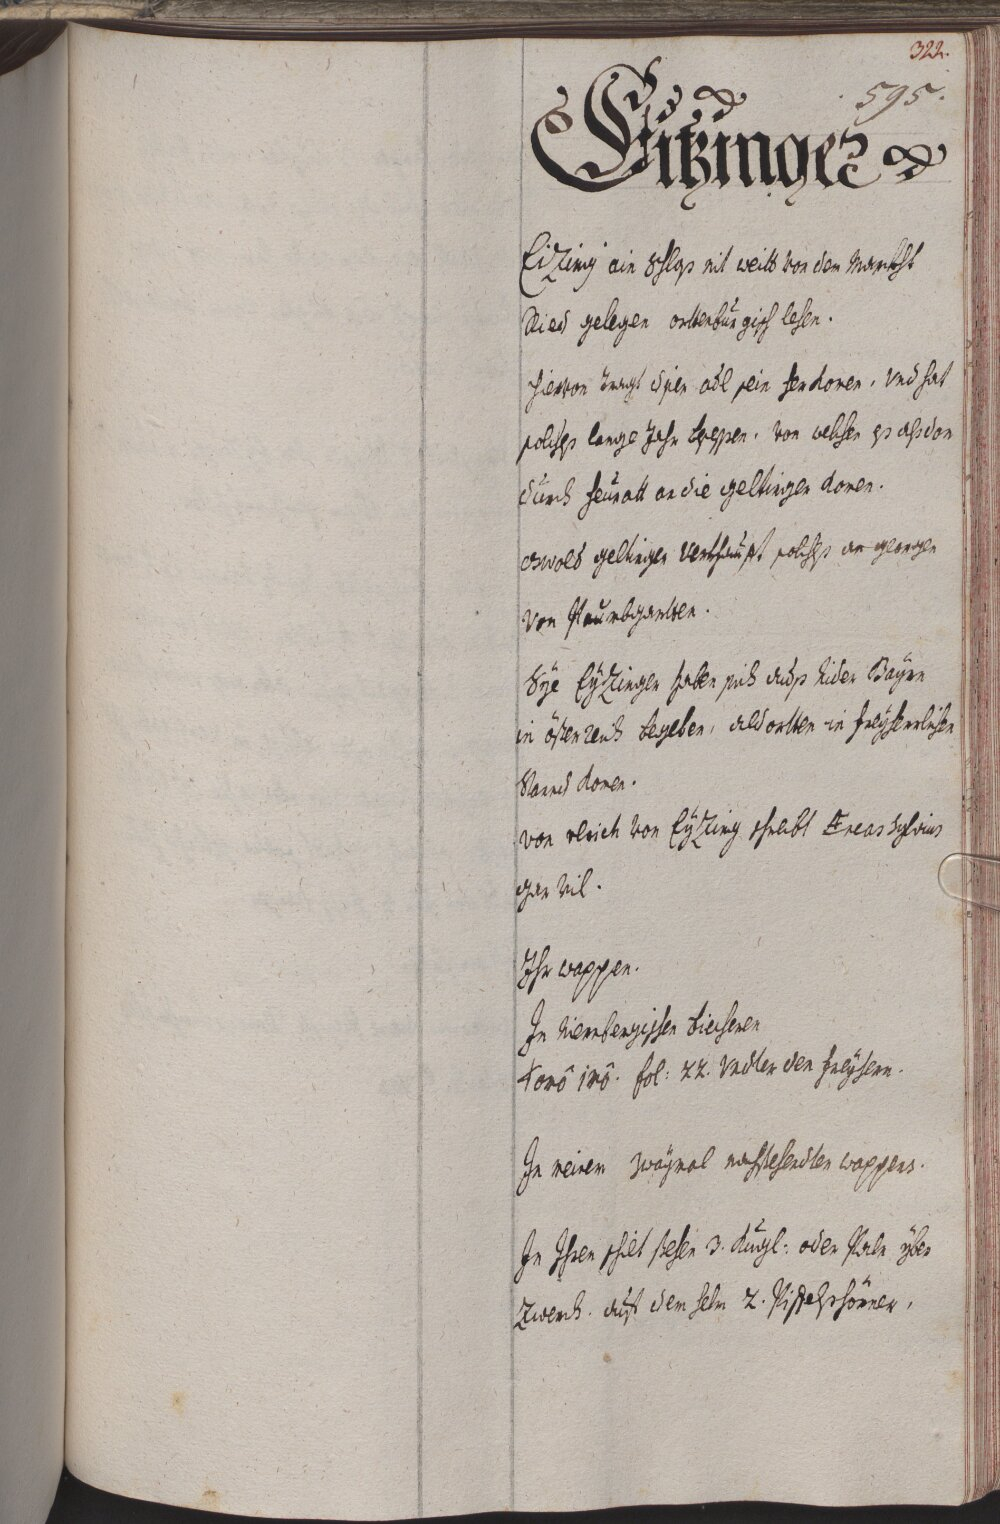 322.
595.
Eitzinger
Eizing ain Schlos nit weitt von dem Marckht
Ried gelegen ortenburgisch lehen.
hiervon tragt diser adl sein herkomen, und hat
solches lange Jahr besessen. von welchen es alsdan
durch heuratt an die geltinger komen.
oswold geltinger verkhaufft solches an georgen
von Paumbgartten.
Dye Eÿzinger haben sich auß Nider Bayrn
in österreich begeben, aldortten in freyherrlichen
Stannd komen.
von ulrich von Eyzing schreibt Æneas Sylvius
gar vil.
Ihr wappen.
In Niernbergischen biecheren
tomô imô. fol: 22. undter den freyhern.
In meinem zwaymal nachstehendten wappens.
In Ihren schilt stehen 3. Kugl: oder Paln yber
Zwerch. auf dem helm 2. Piffelshörner,